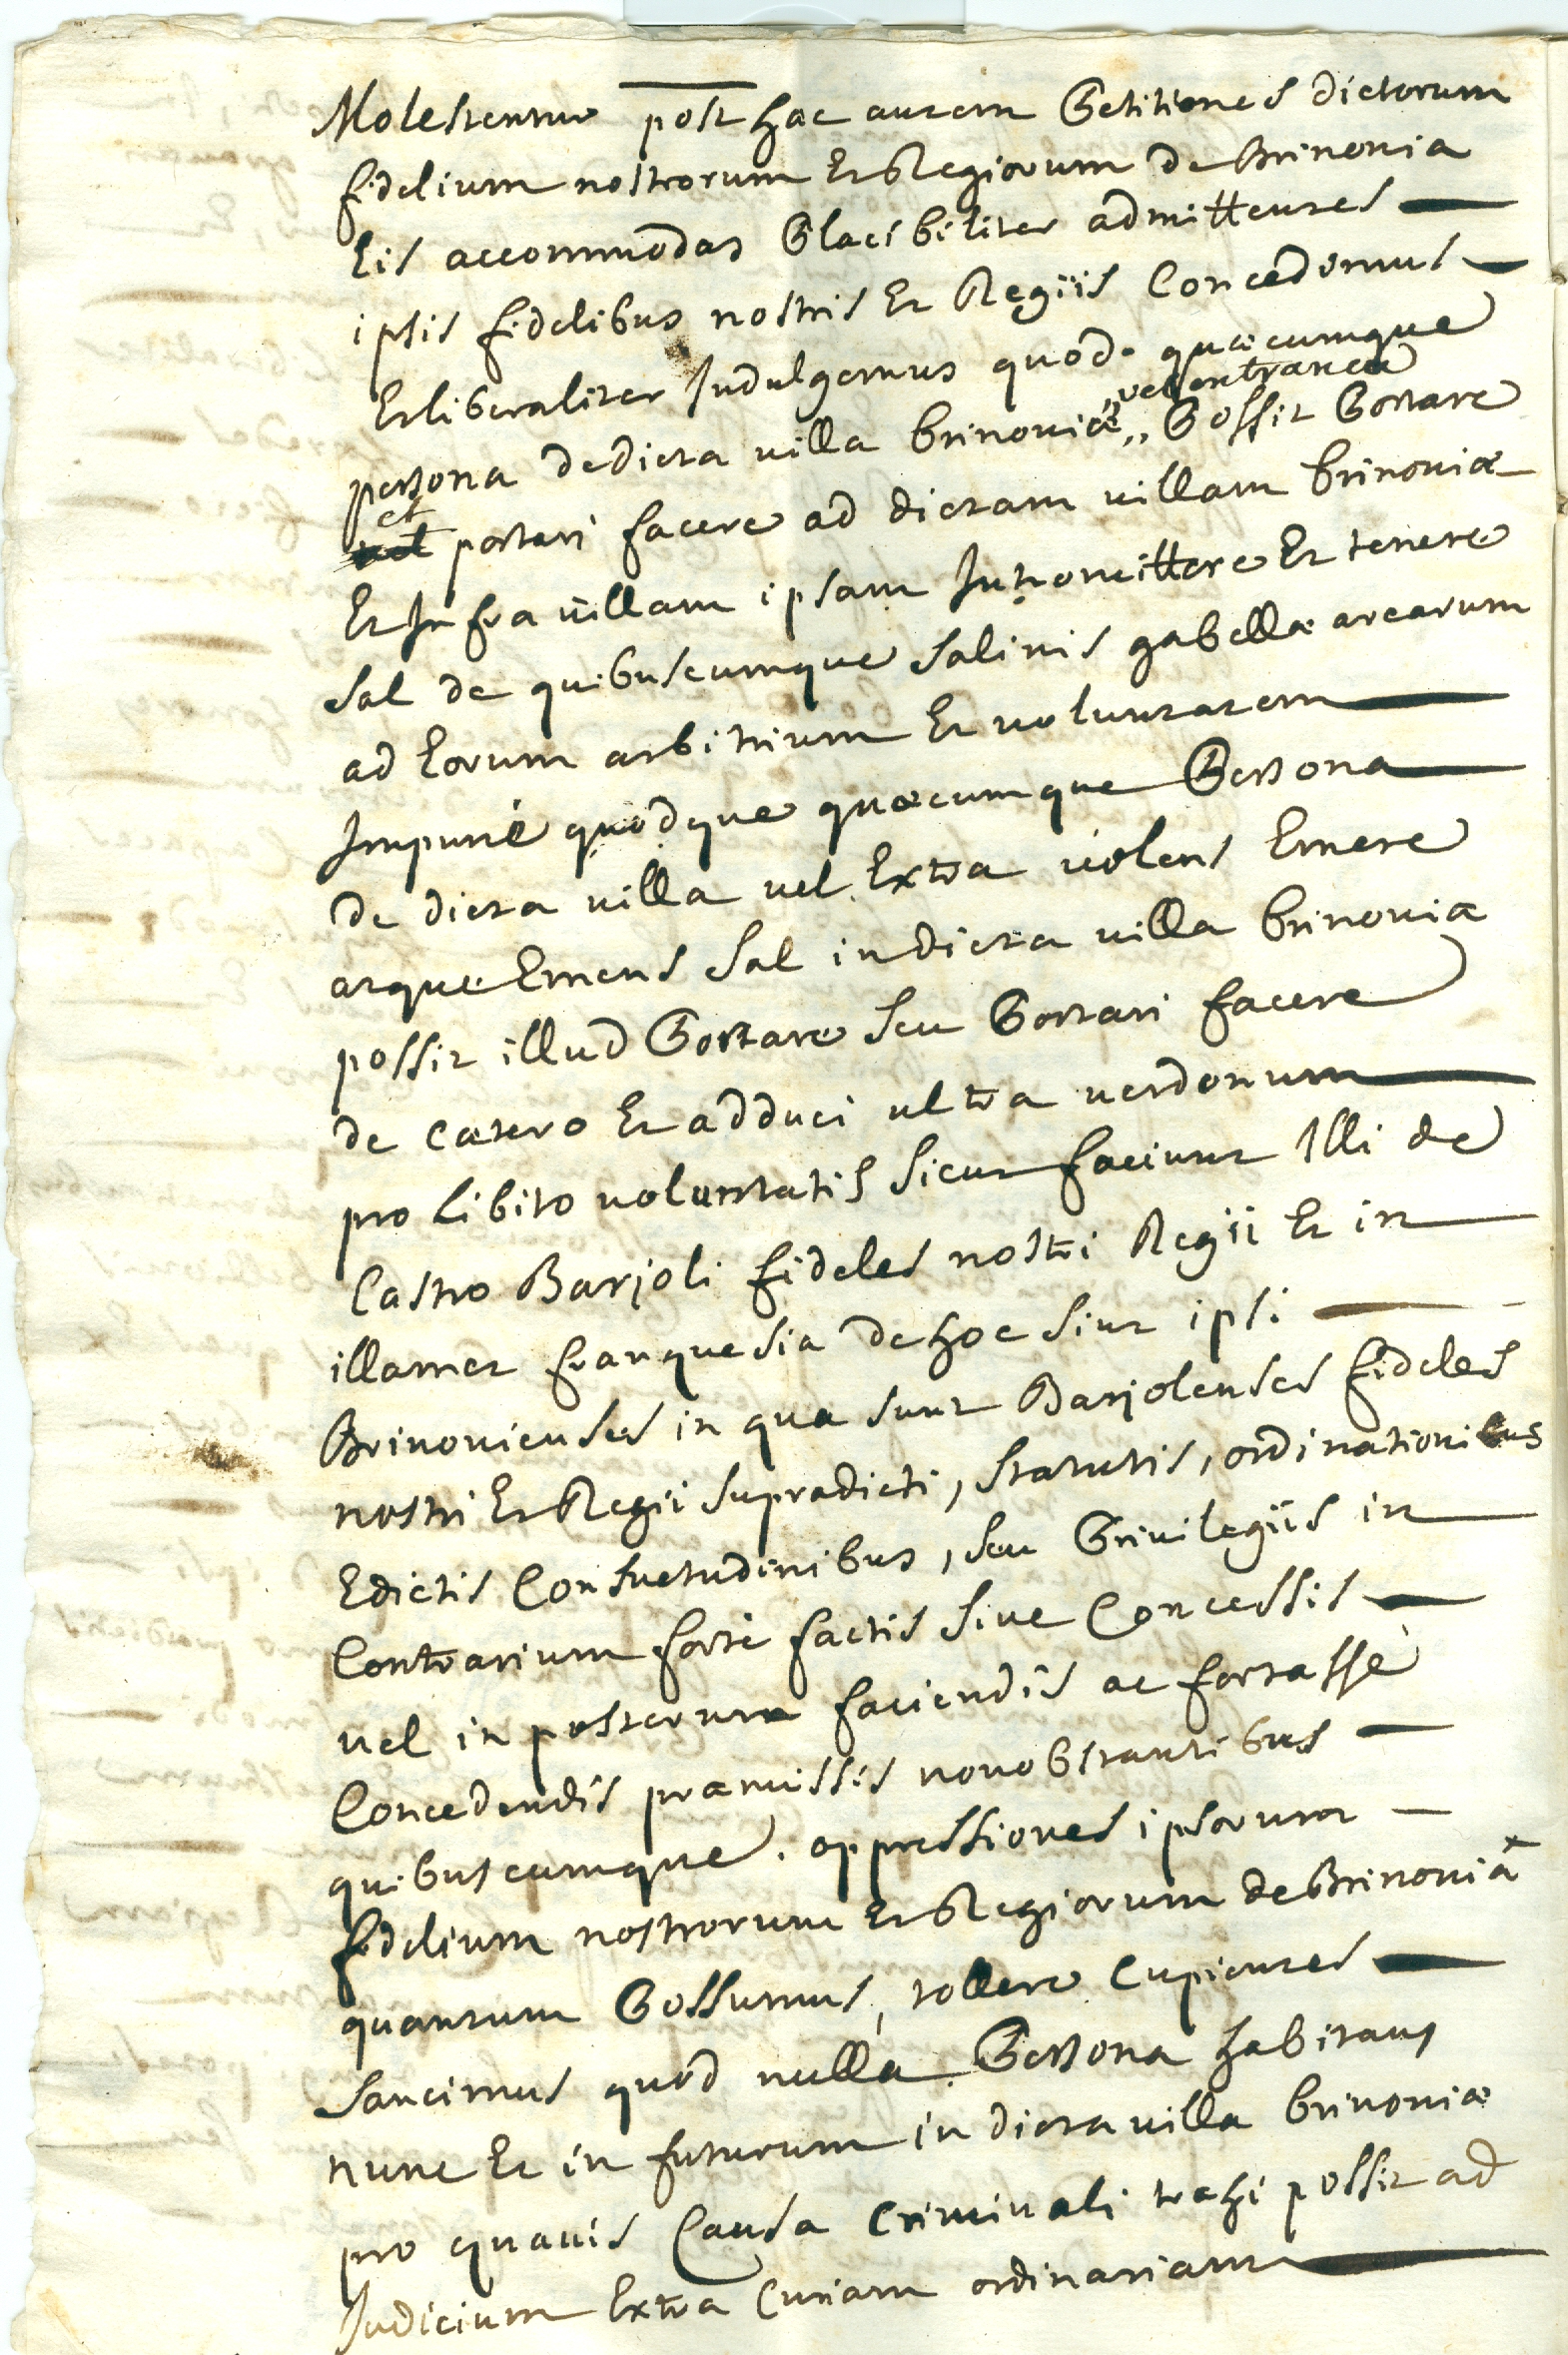 Molestentur post hac autem Petitiones dictorum
fidelium nostrorum Et Regiorum de Brinonia
Eis accommodas Placibiliter admittentes
ipsis fidelibus nostris Et Regiis Concedimus
Et liberaliter Indulgemus quod quæcumque
persona de dicta villa Brinoniæ „ vel extranea „ Possit Portare
et portari facere ad dictam villam brinoniæ
Et Infra villam ipsam Intromittere Et tenere
Sal de quibuscumque Salinis gabellæ arearum
ad Eorum arbitrium Et voluntatem
Impunè quodque quæcumque Persona
de dicta villa vel Extra volens Emere
atque Emens Sal in dicta villa brinoniæ
possit illud Portare Seu Portari facere
de Cætero Et adduci ultra verdonum
pro libito voluntatis Sicut faciunt Illi de
Castro Barjoli fideles nostri Regii Et in
illamet franquesia de hoc Sint ipsi
Brinonienses in qua sunt Barjolenses fideles
nostri Et Regii Supradicti, Statutis, ordinationibus
Edictis Consuetudinibus, Seu Privilegiis in
Contrarium fortè factis Sive Concessis
vel in posterum faciendis ac fortassè
Concedendis præmissis non obstantibus
quibuscumque. oppressiones ipsorum
fidelium nostrorum Et Regiorum de Brinoniâ
quantum Possumus, tollere Cupientes
Sancimus quod nulla Persona habitans
nunc Et in futurum in dicta villa brinoniæ
pro quavis Causa Criminali trahi possit ad
Judicium Extra Curiam ordinariam